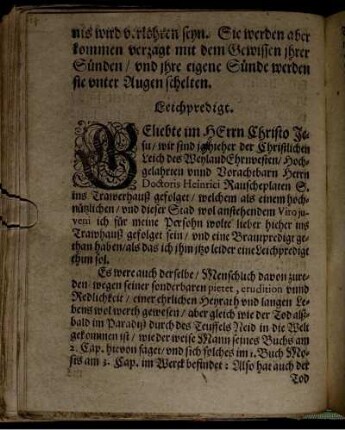 nis wird verlohren seyn. Sie werden aber
kommen verzagt mit dem Gewissen jhrer
Sünden / vnd jhre eigene Sünde werden
sie vnter Augen schelten.
Leichpredigt.
GEliebte im HErrn Christo Je-
su / wir sind hieher der Christlichen
Leich des Weyland Ehrnvesten / Hoch-
gelahrten vnnd Vorachtbarn Herrn
Doctoris Heinrici Rauscheplaten S.
ins Trawerhauß gefolget / welchem als einem hoch-
nützlichen / vnd dieser Stad wol anstehendem Viro ju-
veni ich für meine Persohn wolte lieber hieher ins
Trawhauß gefolget sein / vnd eine Brautpredigt ge-
than haben / als das ich jhm jtzo leider eine Leichpredigt
thun sol.
Es were auch derselbe / Menschlich davon zure-
den / wegen seiner sonderbaren pietet, erudition vnnd
Redlichkeit / einer ehrlichen Heyrath vnd langen Le-
bens wol werth gewesen / aber gleich wie der Tod alß-
bald im Paradiß durch des Teuffels Neid in die Welt
gekommen ist / wie der weise Mann seines Buchs am
2. Cap. hievon saget / vnd sich solches im 1. Buch Mo-
sis am 3. Cap. im Werck befindet : Also hat auch der
Tod